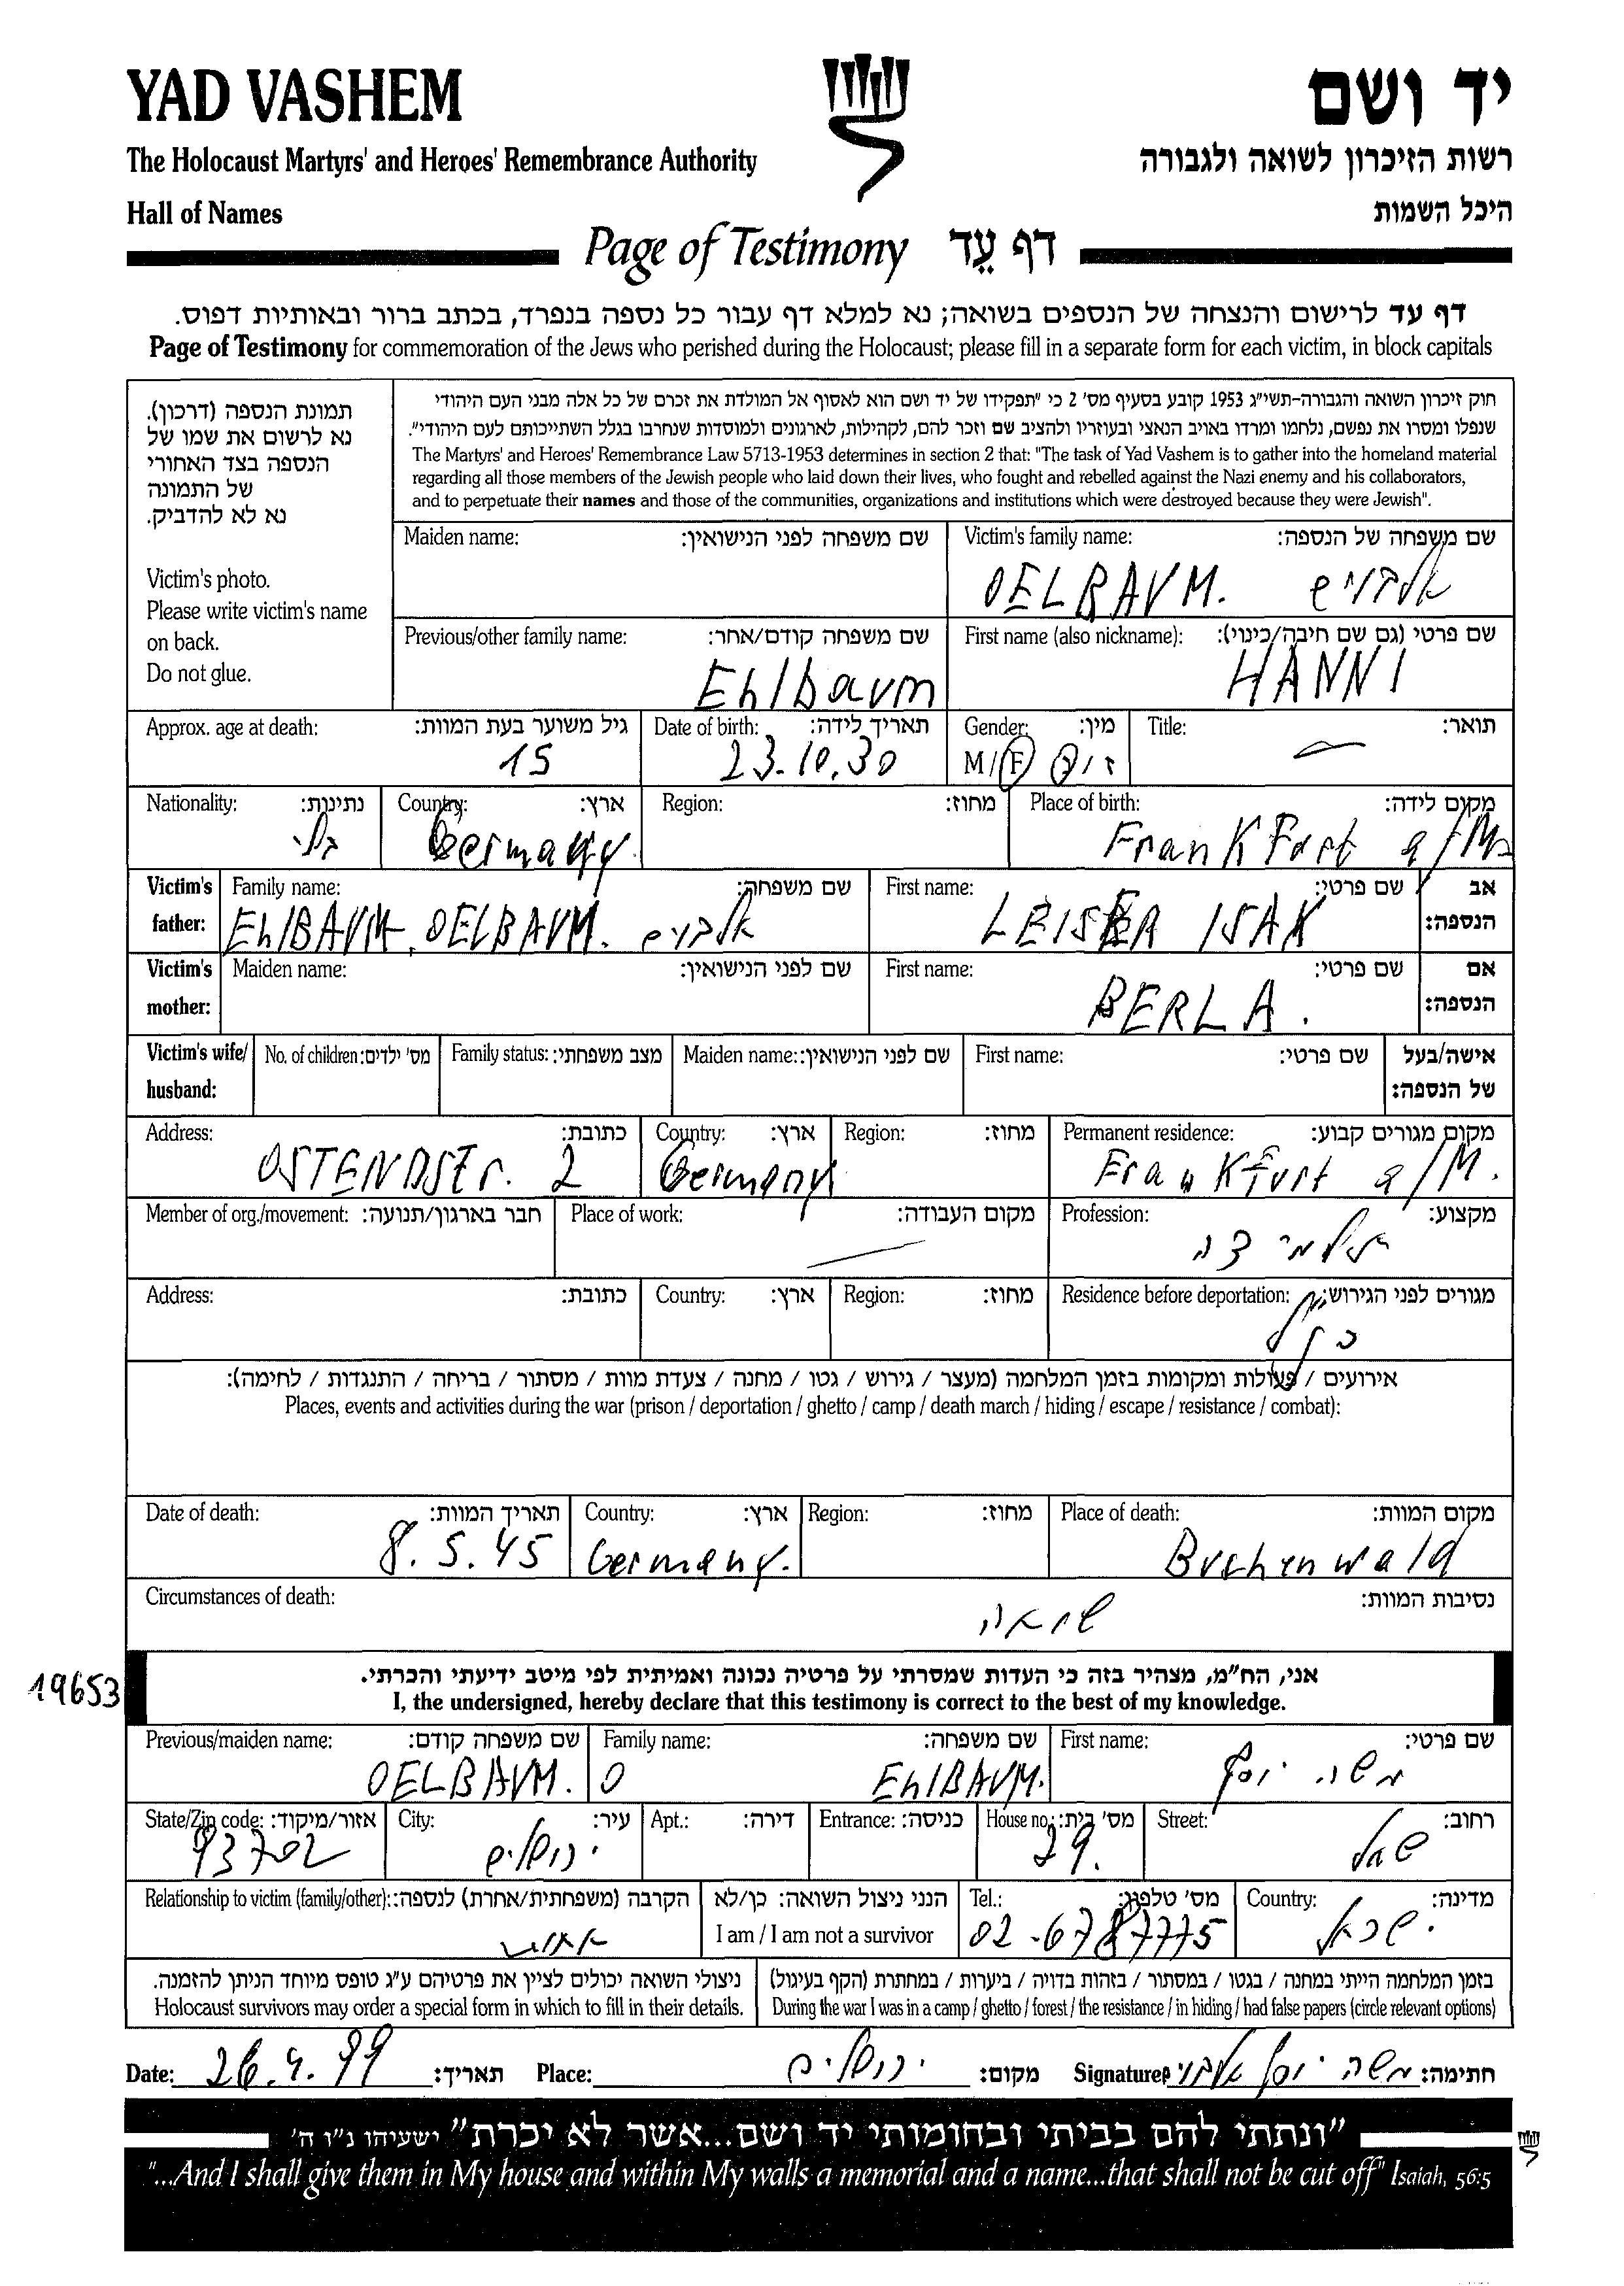 YAD VASHEM
יד ושם
The Holocaust Martyrs' and Heroes' Remembrance Authority
רשות הזיכרון לשואה ולגבורה
Hall of Names
היכל השמות
Page of Testimony דף עֵד
דף עד לרישום והנצחה של הנספים בשואה; נא למלא דף עבור כל נספה בנפרד, בכתב ברור ובאותיות דפוס.
Page of Testimony for commemoration of the Jews who perished during the Holocaust; please fill in a separate form for each victim, in block capitals
תמונת הנספה (דרכון).
נא לרשום את שמו של
הנספה בצד האחורי
של התמונה
נא לא להדביק.
Victim's photo.
Please write victim's name
on back.
Do not glue.
חוק זיכרון השואה והגבורה-תשי״ג 1953 קובע בסעיף מס' 2 כי "תפקידו של יד ושם הוא לאסוף אל המולדת את זכרם של כל אלה מבני העם היהודי
שנפלו ומסרו את נפשם, נלחמו ומרדו באויב הנאצי ובעוזריו ולהציב שם וזכר להם, לקהילות, לארגונים ולמוסדות שנחרבו בגלל השתייכותם לעם היהודי".
The Martyrs' and Heroes' Remembrance Law 5713-1953 determines in section 2 that: "The task of Yad Vashem is to gather into the homeland material
regarding all those members of the Jewish people who laid down their lives, who fought and rebelled against the Nazi enemy and his collaborators,
and to perpetuate their names and those of the communities, organizations and institutions which were destroyed because they were Jewish".
Maiden name: שם משפחה לפני הנישואין:
Victim's family name: שם משפחה של הנספה:
OELBAUM. אלבוים
Previous/other family name: שם משפחה קודם/אחר:
Ehlbaum
First name (also nickname): שם פרטי (גם שם חיבה/כינוי):
HANNI
Approx. age at death: גיל משוער בעת המוות:
15
Date of birth: תאריך לידה:
23.10.30
Gender: מין:
M/F ז/נ
Title: תואר:
Nationality: נתינות:
Country: ארץ:
Germany
Region: מחוז:
Place of birth: מקום לידה:
Frankfort a/M
Victim's father: Family name: שם משפחה:
EhlBAUM, OELBAUM. אלבוים
First name: שם פרטי:
LEISER ISAK
אב הנספה:
Victim's mother: Maiden name: שם לפני הנישואין:
First name: שם פרטי:
BERLA.
אם הנספה:
Victim's wife/husband: No. of children: מס' ילדים: Family status: מצב משפחתי: Maiden name: שם לפני הנישואין: First name: שם פרטי: אישה/בעל של הנספה:
Address: כתובת:
OSTENDSTr. 2
Country: ארץ:
Germany
Region: מחוז:
Permanent residence: מקום מגורים קבוע:
Frankfurt a/M.
Member of org./movement: חבר בארגון/תנועה:
Place of work: מקום העבודה:
Profession: מקצוע:
תלמידה
Address: כתובת: Country: ארץ: Region: מחוז:
Residence before deportation: מגורים לפני הגירוש:
כנ״ל
אירועים / פעולות ומקומות בזמן המלחמה (מעצר / גירוש / גטו / מחנה / צעדת מוות / מסתור / בריחה / התנגדות / לחימה):
Places, events and activities during the war (prison / deportation / ghetto / camp / death march / hiding / escape / resistance / combat):
Date of death: תאריך המוות:
8.5.45
Country: ארץ:
Germany.
Region: מחוז:
Place of death: מקום המוות:
Buchenwald
Circumstances of death: נסיבות המוות:
שואה
19653
אני, הח״מ, מצהיר בזה כי העדות שמסרתי על פרטיה נכונה ואמיתית לפי מיטב ידיעתי והכרתי.
I, the undersigned, hereby declare that this testimony is correct to the best of my knowledge.
Previous/maiden name: שם משפחה קודם:
OELBAUM.
Family name: שם משפחה:
EhlBAUM.
First name: שם פרטי:
משה יוסף
State/Zip code: אזור/מיקוד:
City: עיר:
ירושלים
Apt.: דירה: Entrance: כניסה:
House no.: מס' בית:
29.
Street: רחוב:
Relationship to victim (family/other): הקרבה (משפחתית/אחרת) לנספה:
הנני ניצול השואה: כן/לא
I am / I am not a survivor
Tel.: מס' טלפון:
02-6787775
Country: מדינה:
ישראל
ניצולי השואה יכולים לציין את פרטיהם ע״ג טופס מיוחד הניתן להזמנה.
Holocaust survivors may order a special form in which to fill in their details.
בזמן המלחמה הייתי במחנה / בגטו / במסתור / בזהות בדויה / ביערות / במחתרת (הקף בעיגול)
During the war I was in a camp / ghetto / forest / the resistance / in hiding / had false papers (circle relevant options)
Date: 26.4.99 תאריך: Place: ירושלים מקום: Signature משה יוסף אלבוים חתימה:
"ונתתי להם בביתי ובחומותי יד ושם...אשר לא יכרת" ישעיהו נ״ו ה'
"...And I shall give them in My house and within My walls a memorial and a name...that shall not be cut off" Isaiah, 56:5